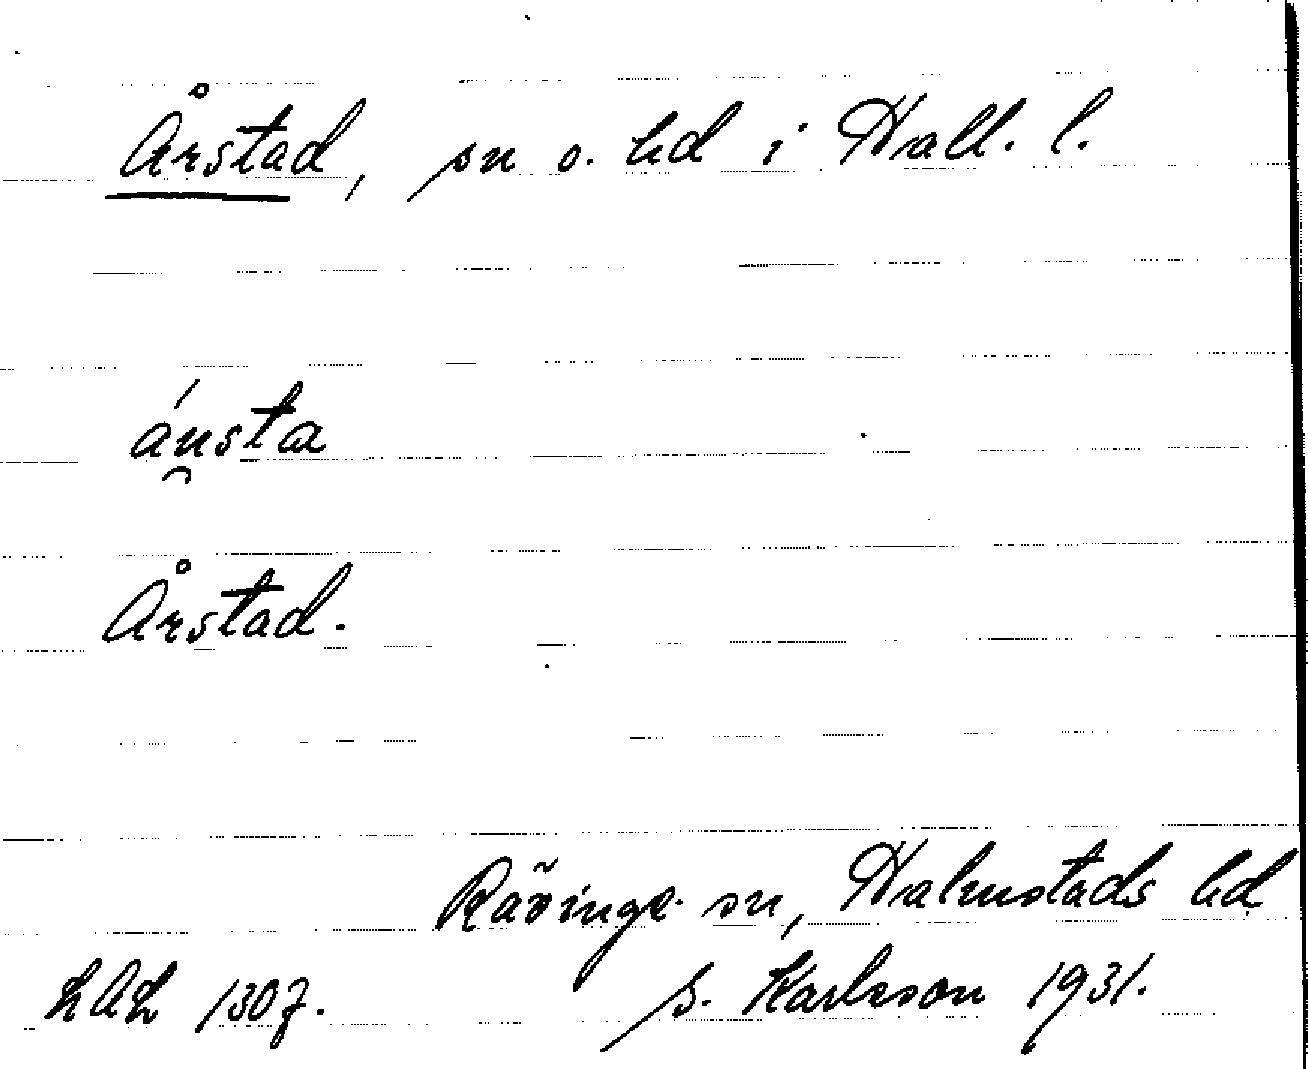 Årstad, sn o. hd i Hall. l.
Årstad.
Rävinge sn, Halmstads hd
LAL 1307. S. Karlsson 1931.